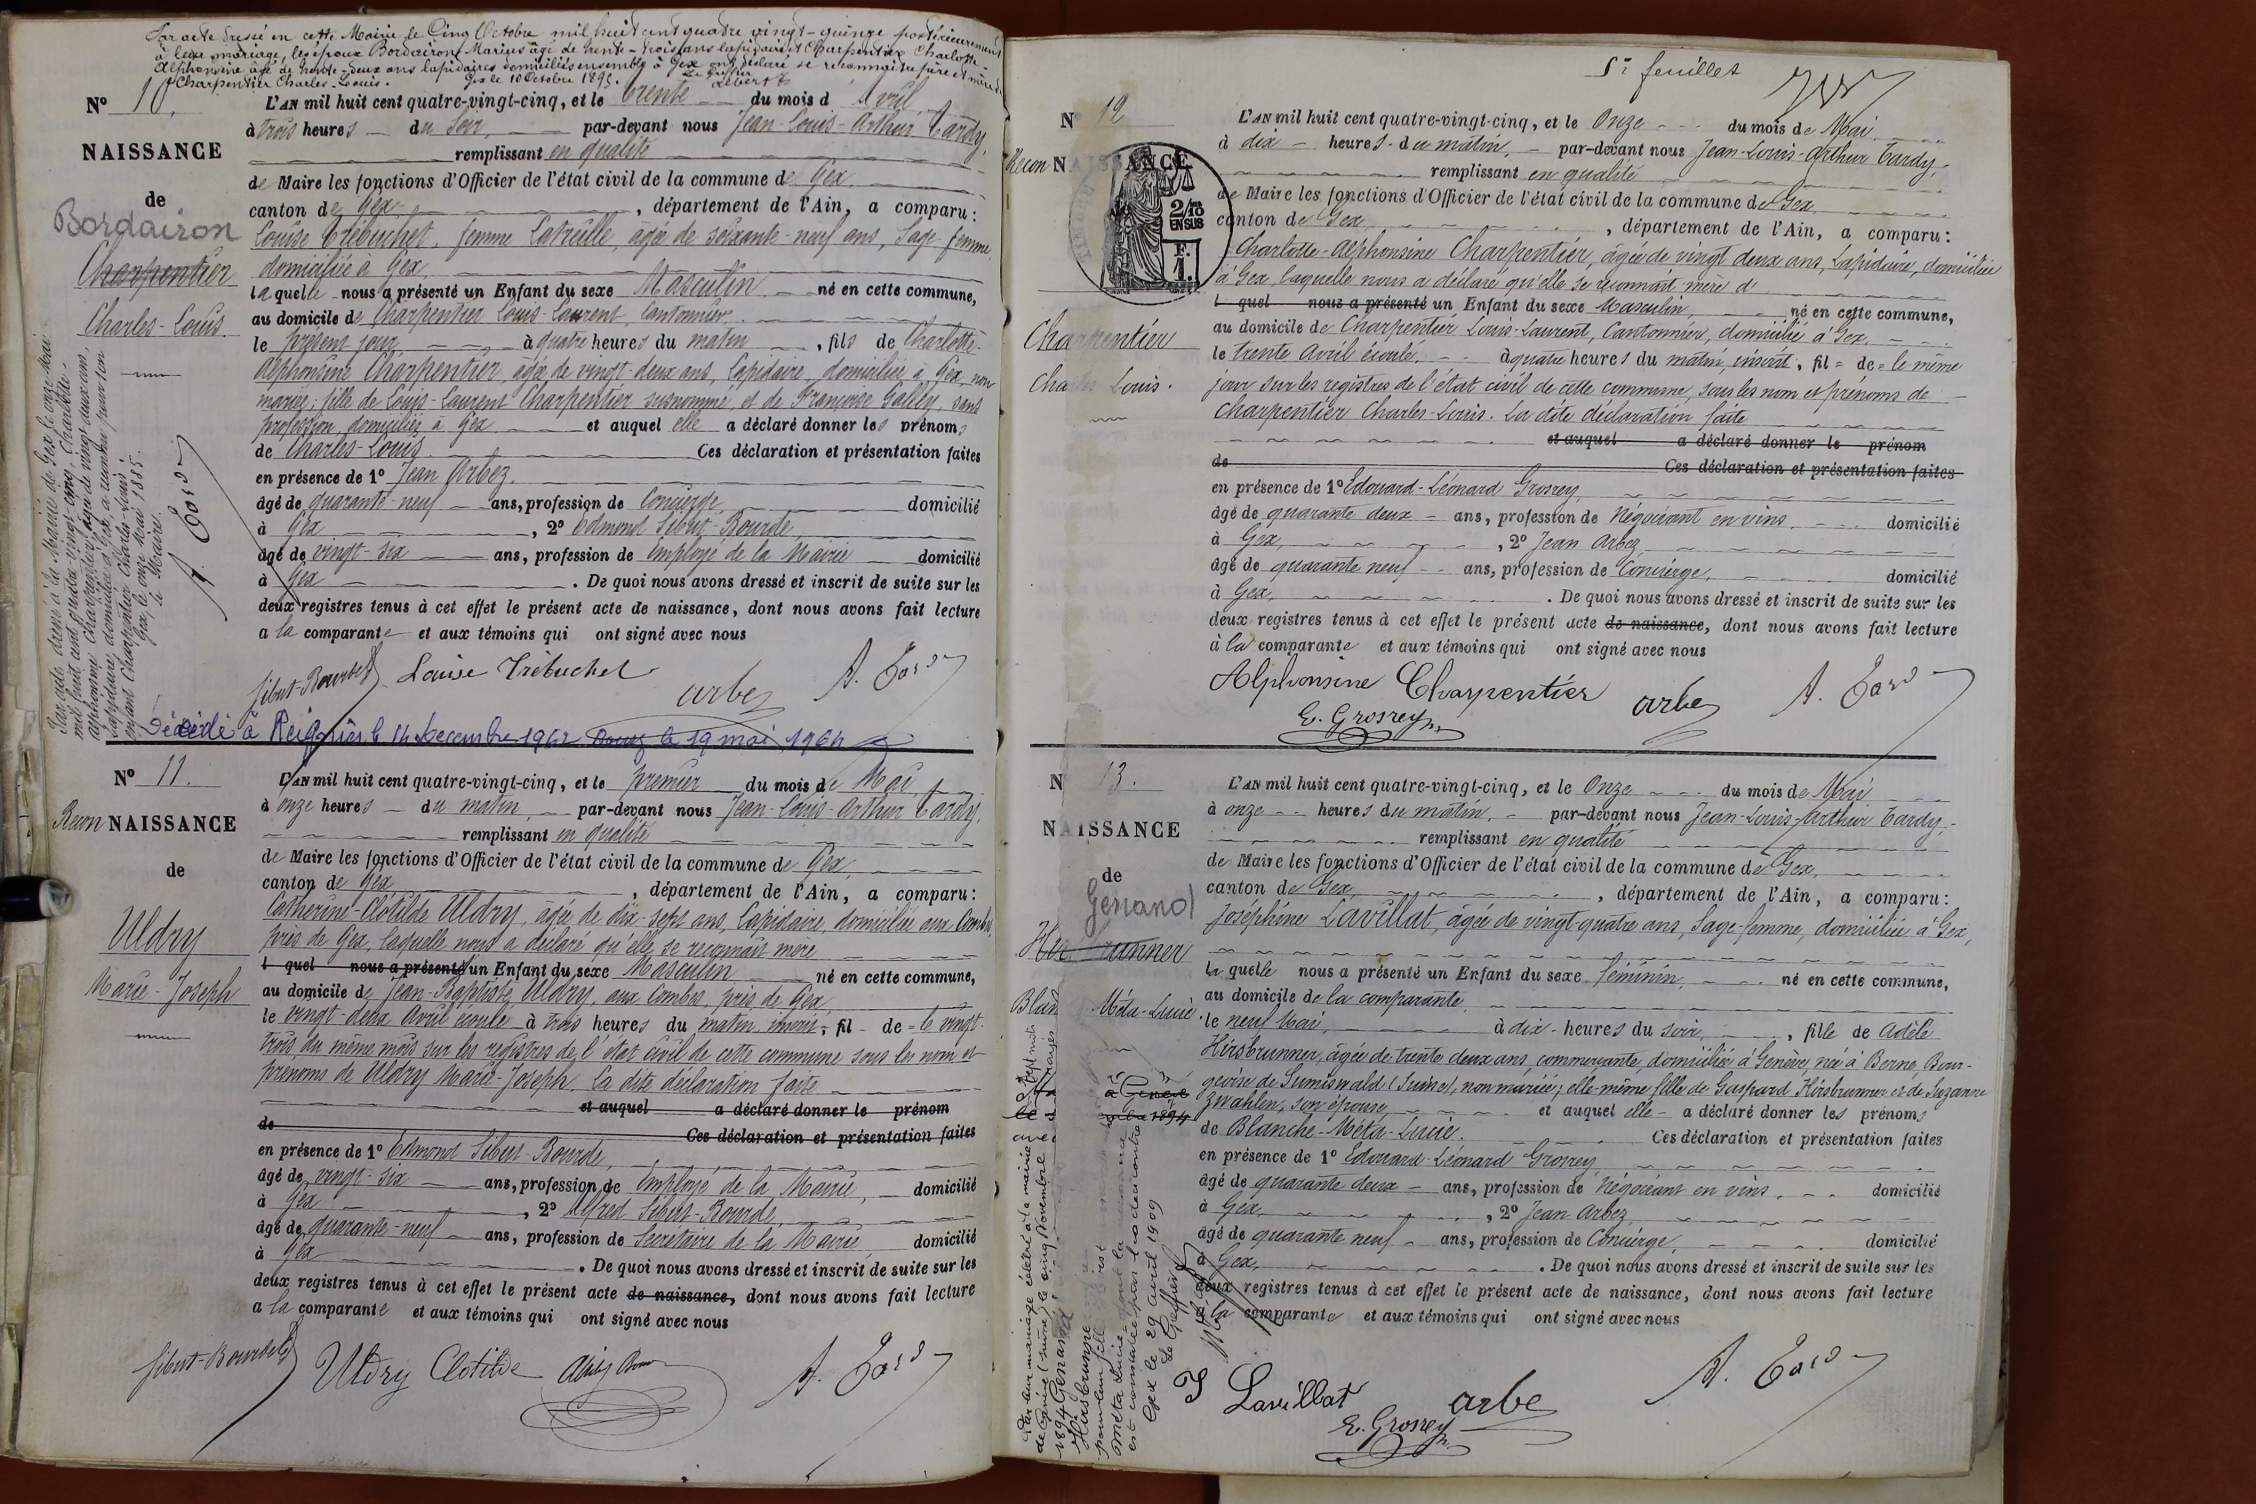 Par acte dressé en cette Mairie le Cinq Octobre mil huit cent quatre vingt-quinze postérieurement
à leur mariage, les époux Bordairon Marius âgé de trente-trois ans lapidaire et Charpentier Charlotte-
Alphonsine âgée de trente-deux ans lapidaires domiciliés ensemble à Gex ont déclaré se reconnaître père et mère
Charpentier Charles-Louis. Gex le 10 Octobre 1895.
Le Greffier
N° 10.
NAISSANCE
de
Bordairon
Charpentier
Charles-Louis.
Par acte dressé à la Mairie de Gex le onze Mai
mil huit cent quatre-vingt-cinq, Charlotte-
alphonsine Charpentier, âgée de vingt deux ans,
lapidaire, domiciliée à Gex, a reconnu pour son
enfant Charpentier Charles-Louis.
Gex, le onze Mai 1885.
Le Maire,
L'AN mil huit cent quatre-vingt-cinq, et le trente du mois d'Avril
à trois heures du soir, par-devant nous Jean-Louis-Arthur Tardy,
remplissant en qualité
de Maire les fonctions d'Officier de l'état civil de la commune de Gex,
canton de Gex, département de l'Ain, a comparu:
Louise Trébuchet, femme Latreille, âgée de soixante-neuf ans, Sage-femme,
domiciliée à Gex,
laquelle nous a présenté un Enfant du sexe Masculin né en cette commune,
au domicile de Charpentier Louis-Laurent, Cantonnier
le présent jour à quatre heures du matin, fils de Charlotte-
Alphonsine Charpentier, âgée de vingt-deux ans, Lapidaire, domiciliée à Gex, non
mariée; fille de Louis-Laurent Charpentier susnommé, et de Françoise Gally, sans
profession, domiciliés à Gex et auquel elle a déclaré donner les prénoms
de Charles-Louis. Ces déclaration et présentation faites
en présence de 1° Jean Arbez,
âgé de quarante-neuf ans, profession de Concierge, domicilié
à Gex, 2° Edmond Sibut-Bourde,
âgé de vingt-six ans, profession de Employé de la Mairie domicilié
à Gex. De quoi nous avons dressé et inscrit de suite sur les
deux registres tenus à cet effet le présent acte de naissance, dont nous avons fait lecture
a la comparante et aux témoins qui ont signé avec nous
Sibut-Bourde Louise Trébuchet arbez A. Tardy
Décédé à le 14 Decembre 1962 le 19 mai 1964
N° 11.
Recon NAISSANCE
de
Uldry
Marie-Joseph
L'AN mil huit cent quatre-vingt-cinq, et le premier du mois de Mai,
à onze heures du matin, par-devant nous Jean-Louis-Arthur Tardy,
remplissant en qualité
de Maire les fonctions d'Officier de l'état civil de la commune de Gex,
canton de Gex, département de l'Ain, a comparu:
Catherine-Clotilde Uldry, âgée de dix-sept ans, Lapidaire, domiciliée aux Combes,
près de Gex, laquelle nous a déclaré qu'elle se reconnaît mère
l quel nous a présenté un Enfant du sexe Masculin né en cette commune,
au domicile de Jean-Baptiste Uldry, aux Combes, près de Gex,
le vingt-deux Avril écoulé à trois heures du matin, inscrit, fil de le vingt-
trois du même mois sur les registres de l'état civil de cette commune sous les nom et
prénoms de Uldry Marie-Joseph. La dite déclaration faite
et auquel a déclaré donner le prénom
de Ces déclaration et présentation faites
en présence de 1° Edmond Sibut-Bourde,
âgé de vingt-six ans, profession de Employé de la Mairie, domicilié
à Gex, 2° Alfred Sibut-Bourde,
âgé de quarante-neuf ans, profession de Secrétaire de la Mairie, domicilié
à Gex. De quoi nous avons dressé et inscrit de suite sur les
deux registres tenus à cet effet le présent acte de naissance, dont nous avons fait lecture
a la comparante et aux témoins qui ont signé avec nous
Sibut-Bourde Uldry Clotilde A. Tardy
5e feuillet
N 12
Recon NAISSANCE
2/10
EN SUS
F.
1.
Charpentier
Charles Louis.
L'AN mil huit cent quatre-vingt-cinq, et le Onze du mois de Mai
à dix heures du matin, par-devant nous Jean-Louis-Arthur Tardy,
remplissant en qualité
de Maire les fonctions d'Officier de l'état civil de la commune de Gex,
canton de Gex, département de l'Ain, a comparu:
Charlotte-Alphonsine Charpentier, âgée de vingt deux ans, Lapidaire, domiciliée
à Gex, laquelle nous a déclaré qu'elle se reconnaît mère d'
l quel nous a présenté un Enfant du sexe Masculin, né en cette commune,
au domicile de Charpentier Louis-Laurent, Cantonnier, domicilié à Gex,
le trente Avril écoulé, à quatre heures du matin, inscrit, fil de le même
jour sur les registres de l'état civil de cette commune, sous les nom et prénoms de
Charpentier Charles-Louis. La dite déclaration faite
et auquel a déclaré donner le prénom
de Ces déclaration et présentation faites
en présence de 1° Edouard-Léonard Grosrey,
âgé de quarante deux ans, profession de Négociant en vins, domicilié
à Gex, 2° Jean Arbez,
âgé de quarante neuf ans, profession de Concierge, domicilié
à Gex. De quoi nous avons dressé et inscrit de suite sur les
deux registres tenus à cet effet le présent acte de naissance, dont nous avons fait lecture
à la comparante et aux témoins qui ont signé avec nous
Alphonsine Charpentier arbez A. Tardy
E. Grosrey
N 13.
NAISSANCE
de
Genand
Hirsbrunner
Blanche Méta-Lucie
L'AN mil huit cent quatre-vingt-cinq, et le Onze du mois de Mai
à onze heures du matin, par-devant nous Jean-Louis-Arthur Tardy,
remplissant en qualité
de Maire les fonctions d'Officier de l'état civil de la commune de Gex,
canton de Gex, département de l'Ain, a comparu:
Joséphine Lavillat, âgée de vingt-quatre ans, Sage-femme, domiciliée à Gex,
la quelle nous a présenté un Enfant du sexe féminin, né en cette commune,
au domicile de la comparante
le neuf Mai, à dix heures du soir, fille de Adèle
Hirsbrunner, âgée de trente deux ans, commerçante, domiciliée à Genève, née à Berne, Bour-
geoise de Sumiswald (Suisse), non mariée; elle-même fille de Gaspard Hirsbrunner et de Suzanne
Zwahlen, son épouse, et auquel elle a déclaré donner les prénoms
de Blanche-Méta-Lucie. Ces déclaration et présentation faites
en présence de 1° Edouard-Léonard Grosrey,
âgé de quarante deux ans, profession de Négociant en vins, domicilié
à Gex, 2° Jean Arbez,
âgé de quarante neuf ans, profession de Concierge, domicilié
à Gex, De quoi nous avons dressé et inscrit de suite sur les
deux registres tenus à cet effet le présent acte de naissance, dont nous avons fait lecture
à la comparante et aux témoins qui ont signé avec nous
Par leur mariage célébré à la mairie
de Genève (Suisse) le cinq Novembre
1894 Genand
Hirsbrunner
pour leur fille
Méta Lucie
Gex le 29 avril 1909
Le Greffier
J Lavillat arbez A. Tardy
E. Grosrey